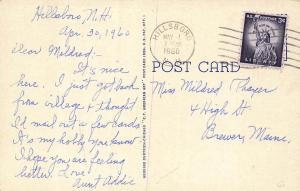 Hillsboro, N.H.
Apr. 30, 1960
Dear Mildred:
It's nice
here. I just got back
from village & thought
I'd mail out a few cards
It's my hobby you know
I hope you are feeling
better. Love
Aunt Addie
HILLSBORO
MAY 1
1960
U.S. POSTAGE
3¢
LIBERTY
POST CARD
Miss Mildred Thayer
4 High St
Brewer, Maine.